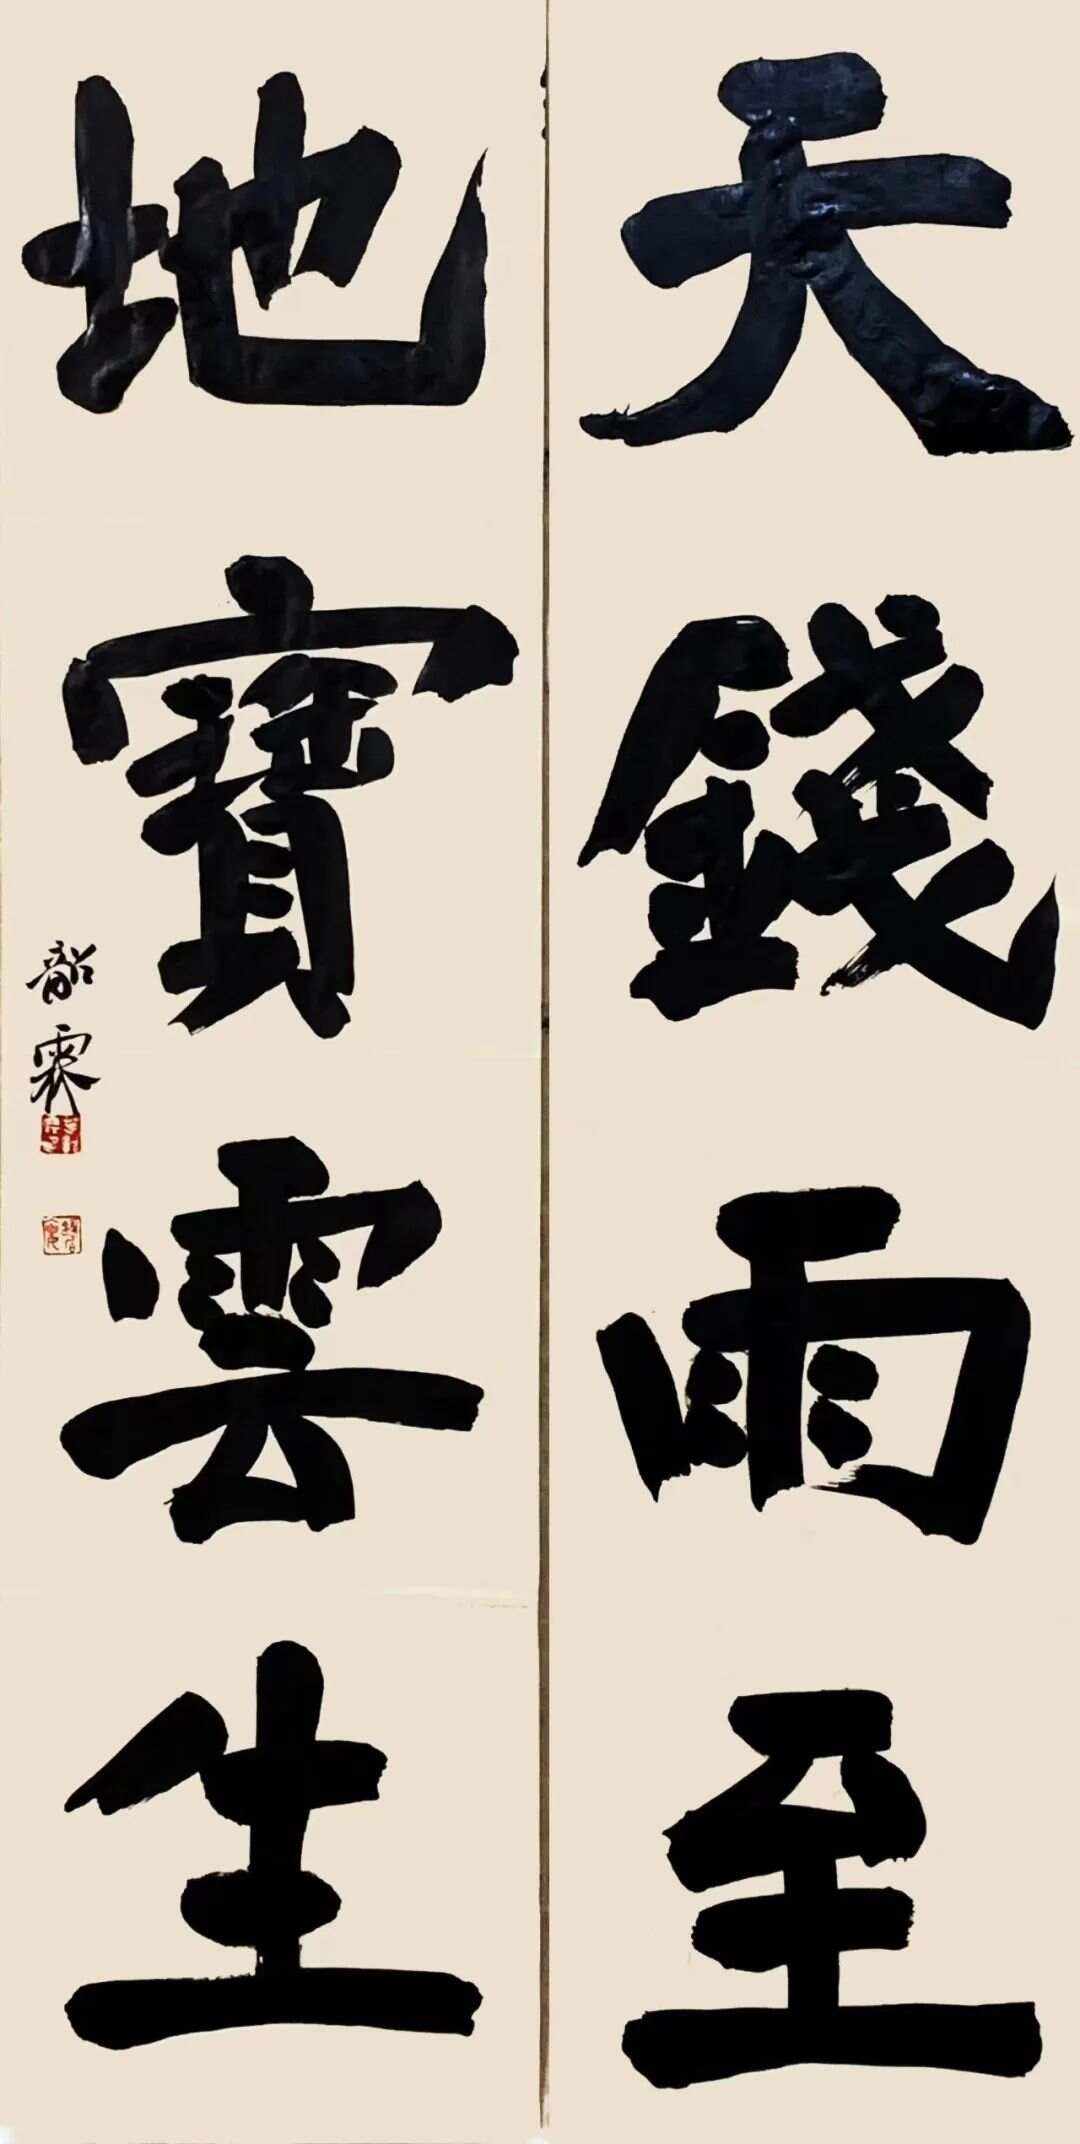 天錢雨至
地寶雲生
韶霖